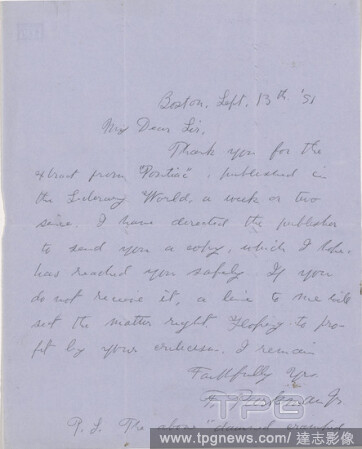 Boston, Sept. 13th '51
My Dear Sir,
Thank you for the
extract from "Pontiac", published in
the Literary World, a week or two
since. I have directed the publisher
to send you a copy, which I hope
has reached you safely. If you
do not receive it, a line to me will
set the matter right. Hoping to pro-
fit by your criticism. I remain
Faithfully Yrs.
F. Parkman Jr.
P. S. The above
TPG
www.tpgnews.com/達志影像